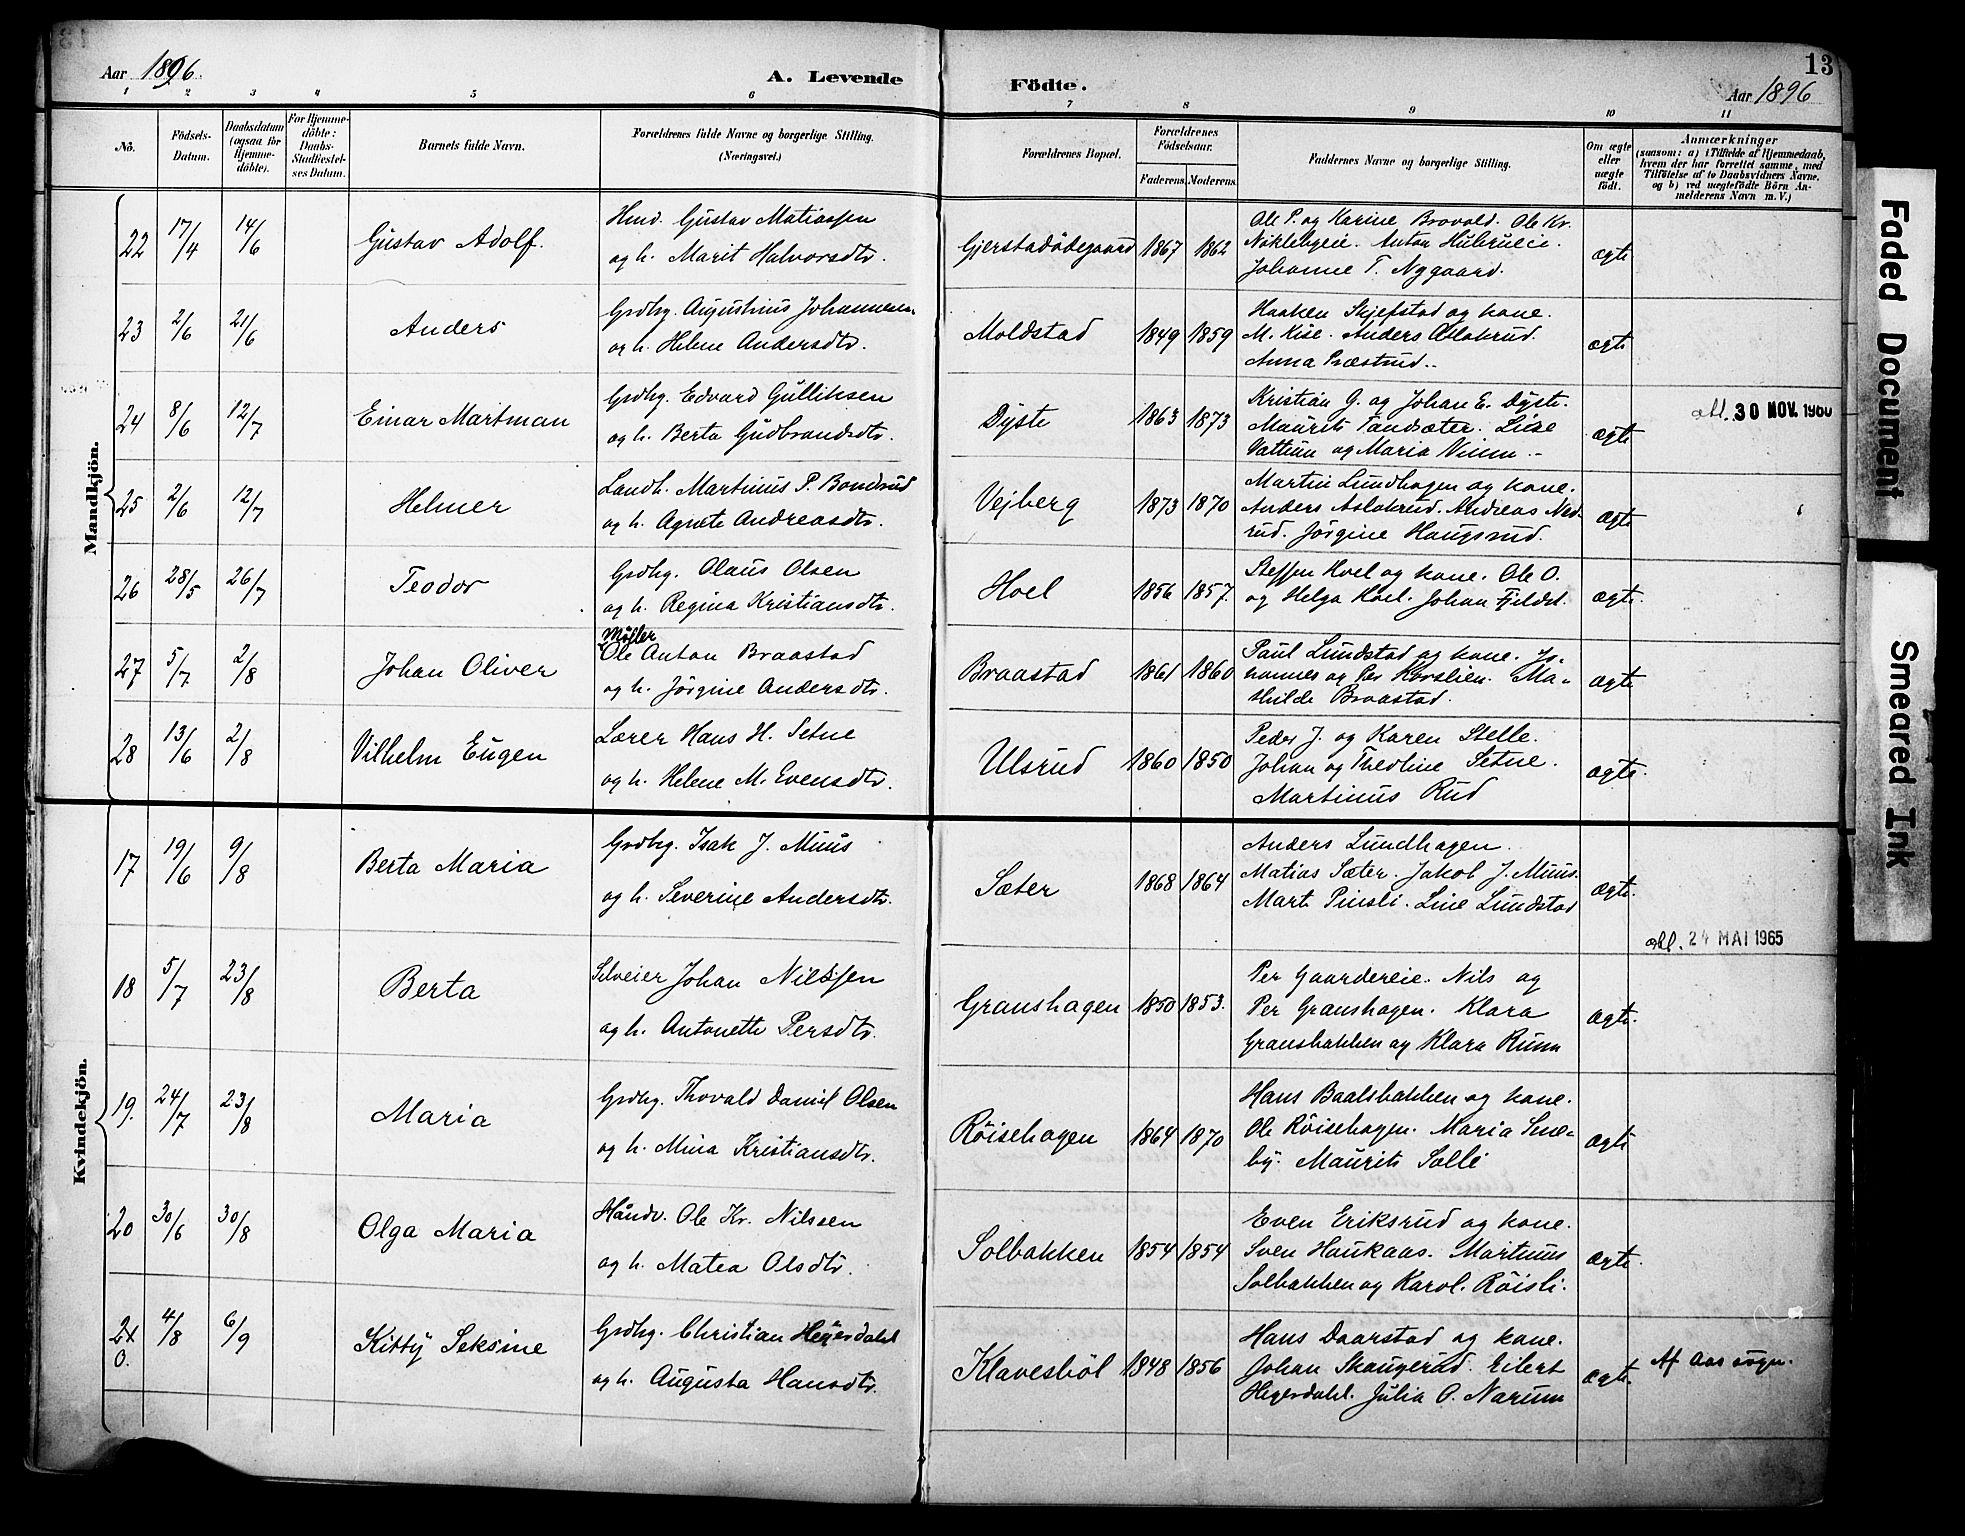 Aar 1896.
A. Levende
Födte.
13
Aar 1896
1 2 3 4 5 6 7 8 9 10 11
No.
Födsels-
Datum.
Daabsdatum
(ogsaa for
Hjemme-
döbte).
For Hjemme-
döbte:
Daabs-
Stadfæstel-
ses Datum.
Barnets fulde Navn.
Forældrenes fulde Navne og borgerlige Stilling.
(Næringsvei.)
Forældrenes Bopæl.
Forældrenes
Födselsaar.
Faderens. Moderens.
Faddernes Navne og borgerlige Stilling.
Om ægte
eller
uægte
födt.
Anmærkninger
(saasom: a) i Tilfælde af Hjemmedaab,
hvem der har forrettet samme, med
Tilföielse af to Daabsvidners Navne,
og b) ved uægtefödte Börn An-
melderens Navn m. V.)
Mandkjön.
22 17/4 14/6 Gustav Adolf.
Hmd. Gustav Matiassen
og h. Marit Halvorsdtr.
Gjerstadödegaard 1867 1862
Ole P. og Karine Brovold. Ole Kr.
Anton
Johanne T. Nygaard.
ægte
23 2/6 21/6 Anders
Grdbg. Augustinus Johannesen
og h. Helene Andersdtr.
Moldstad 1849 1859
Haaken Skjefstad og kone.
M. Kise. Anders Aslakrud.
Anna Præstrud..
ægte
24 8/6 12/7 Einar Martman
Grdbg. Edvard Gulliksen
og h. Berta Gudbrandsdtr.
Dyste 1863 1873
Kristian G. og Johan E. Dyste.
Maurits Tandsæter. Lise
og Maria
ægte
afl. 30 NOV. 1960
25 2/6 12/7 Helmer
Landh. Martinus P. Bondrud
og h. Agnete Andreasdtr.
Vejberg 1873 1870
Martin Lundhagen og kone.
Anders Aslakrud. Andreas Ned-
rud. Jörgine Haugsrud.
ægte
26 28/5 26/7 Teodor
Grdbg. Olaus Olsen
og h. Regina Kristiansdtr.
Hoel 1856 1857.
Steffen Hoel og kone. Ole O.
og Helga Hoel. Johan Fjeldst.
ægte.
27 5/7 2/8 Johan Oliver
Møller
Ole Anton Braastad
og h. Jörgine Andersdtr.
Braastad 1861 1860
Paul Lundstad og kone. Jo-
hannes og Per Korslien. Ma-
thilde Braastad.
ægte
28 13/6 2/8 Vilhelm Eugen
Lærer Hans H. Setne
og h. Helene M. Evensdtr.
Ulsrud 1860 1850
Peder J. og Karen Stelle.
Johan og Thedline Setne.
Martinus Rud
ægte.
Kvindekjön.
17 19/6 9/8 Berta Maria
Grdbg. Isak J. Muus
og h. Severine Andersdtr.
Sæter 1868 1864
Anders Lundhagen.
Matias Sæter. Jakob J. Muus.
Mart. Pinsli. Line Lundstad
ægte.
18 5/7 23/8 Berta
Selveier Johan Nilssen
og h. Antonette Persdtr.
Granshagen 1850 1853.
Per Gaardereie. Nils og
Per Granshagen. Klara
Gransbakken og Klara Ruun
ægte.
afl. 24 MAI 1965
19. 24/7 23/8 Maria
Grdbg. Thovald Daniel Olsen
og h. Mina Kristiansdtr.
Röisehagen 1864 1870
Hans Baalsbakken og kone.
Ole Röisehagen. Maria Sme-
by. Maurits Solli
ægte
20 30/6 30/8 Olga Maria
Håndv. Ole Kr. Nilssen
og h. Matea Olsdtr.
Solbakken 1854 1854
Even Eriksrud og kone.
Sven Haukaas. Martinus
Solbakken og Karol. Röisli.
ægte.
2x
0. 4/8 6/9 Kitty Seksine
Grdbg. Christian Heyerdahl
og h. Augusta Hansdtr.
Klavesböl 1848 1856
Hans Daarstad og kone.
Johan Skaugerud. Eilert
Heyerdahl. Julia O. Narum
ægte.
Af Aas sogn.
Faded Document
Smeared Ink